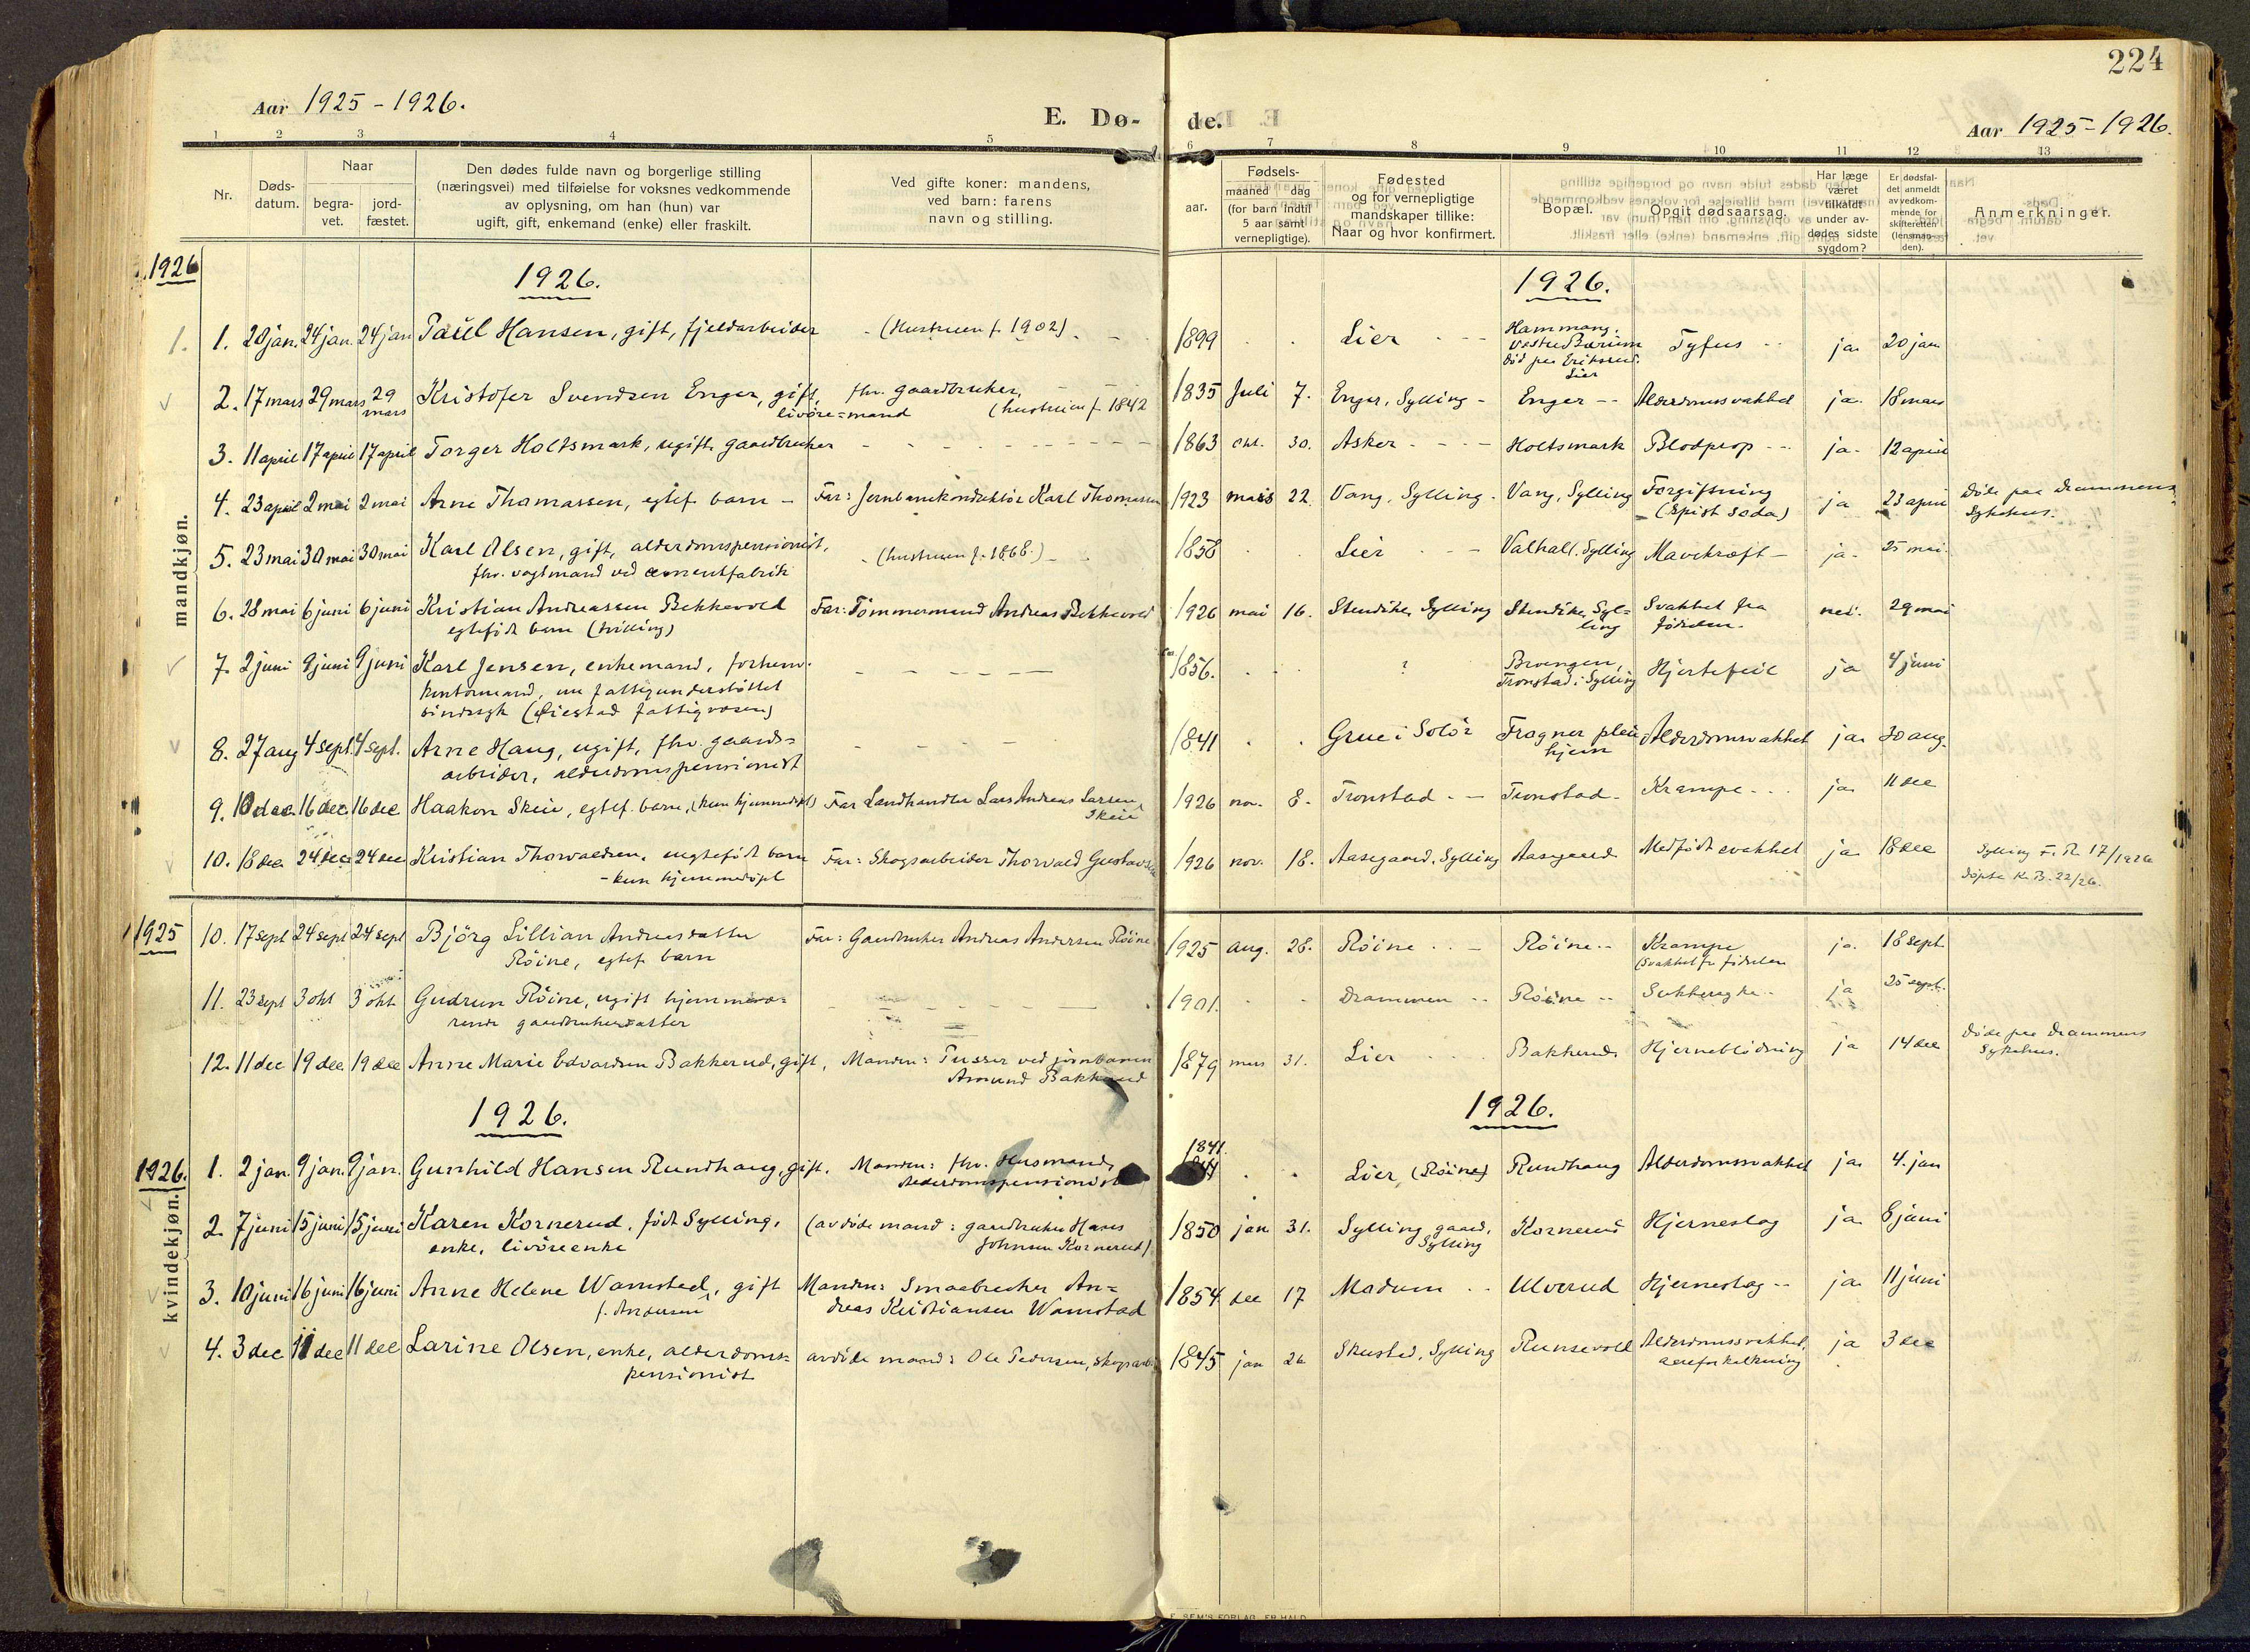 224
Aar 1925 - 1926.
E. Dø-
de.
Aar 1925-1926.
1 2 3 4 5 6 7 8 9 10 11 12 13
Nr.
Døds-
datum.
Naar
begra-
vet.
jord-
fæstet.
Den dødes fulde navn og borgerlige stilling
(næringsvei) med tilføielse for voksnes vedkommende
av oplysning, om han (hun) var
ugift, gift, enkemand (enke) eller fraskilt.
Ved gifte koner: mandens,
ved barn: farens
navn og stilling.
Fødsels-
aar.
maaned dag
(for barn indtil
5 aar samt
vernepligtige).
Fødested
og for vernepligtige
mandskaper tillike:
Naar og hvor konfirmert.
Bopæl.
Opgit dødsaarsag.
Har læge
været
tilkaldt
under av-
dødes sidste
sygdom?
Er dødsfal-
det anmeldt
av vedkom-
mende for
skifteretten
(lensman-
den).
Anmerkninger.
1926
1926.
1926.
mandkjøn.
1. 20 jan. 24 jan. 24 jan Paul Hansen, gift, fjeldarbeider (Hustruen f. 1902) 1899 Lier Hammang, Vestre Bærum død paa Eriksrud Lier Tyfus ja 20 jan
2. 17 mars 29 mars 29 mars Kristofer Svendsen Enger, gift, fhv. gaardbruker,
livøre=mand (hustruen f. 1842 1835 Juli 7. Enger, Sylling - Enger -- Alderdomssvakhet ja 18 mars
3. 11 april 17 april 17 april Torger Holtsmark, ugift, gaardbruker 1863 okt. 30. Asker Holtsmark Blodprop ja 12 april
4. 23 april 2 mai 2 mai Arne Thomassen, egtef. barn - Far: Jernbanekonduktør Karl Thomassen 1923 mars 22. Vang, Sylling - Vang, Sylling Forgiftning (spist soda) ja 23 april Døde paa Drammens Sykehus.
5. 23 mai 30 mai 30 mai Karl Olsen, gift, alderdomspensionist,
fhv. vagtmand ved cementfabrik (hustruen f. 1868.) 1858 Lier Valhall, Sylling Mavekræft - ja 25 mai.
6. 28 mai 6 juni 6 juni Kristian Andreassen Bekkevold
egtefødt barn (tvilling) Far: Tømmermand Andreas Bekkevold 1926 mai 16. Stendike, Sylling Stendike, Syl=ling Svakhet fra fødselen. nei. 29 mai
7. 2 juni 9 juni 9 juni Karl Jensen, enkemand, forhenv.
kontormand, nu fattigunderstøttet
sindssyk (Øiestad fattigvæsen) 1856. ? Tronstad i Sylling Hjertefeil ja 4 juni
8. 27 aug 4 sept. 4 sept. Arne Haug, ugift, fhv. gaards=
arbeider, alderdomspensionist 1841 Grue i Solør Frogner pleie hjem Alderdomssvakhet ja 30 aug.
9. 10 dec. 16 dec. 16 dec Haakon Skeie, egtef. barn, (kun hjemmedøpt) Far Landhandler Lars Andreas Larsen Skeie 1926 nov. 8. Tronstad -- Tronstad - Krampe ja 11 dec
10. 18 dec 24 dec 24 dec Kristian Thorvaldsen, uegtefødt barn
- kun hjemmedøpt Far: Skogsarbeider Thorvald Gustavsen 1926 nov. 18. Aasegaard, Sylling Aasegaard Medfødt svakhet ja 18 dec Sylling F. R. 17/1926 døpte K.B. 22/26.
1925
10. 17 sept 24 sept 24 sept Bjørg Lillian Andreasdatter
Røine, egtef. barn Far: Gaardbruker Andreas Andersen Røine 1925 aug. 28. Røine Røine Krampe (svakhet fr. fødselen ja. 18 sept
11. 23 sept 3 okt 3 okt Gudrun Røine, ugift hjemmevæ=
rende gaardbrukerdatter 1901. Drammen Røine Sukkersyke ja 25 sept.
12. 11 dec 19 dec 19 dec Anne Marie Edvardsen Bakkerud, gift, Manden: Pusser ved jernbanen
Amund Bakkerud 1879 mars 31. Lier Bakkerud Hjerneblødning ja 14 dec Døde paa Drammens Sykehus.
1926.
1926.
1926.
kvindekjøn.
1. 2 jan. 9 jan. 9 jan. Gunhild Hansen Rundhaug, gift. Manden: fhv. Husmand,
Alderdomspensionist 1841. Lier, (Røine) Rundhaug Alderdomssvakhet ja 4. jan
2. 7 juni 15 juni 15 juni Karen Kornerud, født Sylling,
enke, livøreenke (avdøde mand: gaardbruker Hans
Johnsen Kornerud) 1850 jan 31. Sylling gaard, Sylling Kornerud Hjerneslag ja 8 juni
3. 10 juni 16 juni 16 juni Anne Helene Wamstad, gift
f. Andersen Manden: Smaabruker An=
dreas Kristiansen Wamstad 1854 dec 17 Modum Ulverud Hjerneslag -- ja 11 juni
4. 3 dec 11 dec 11 dec Larine Olsen, enke, alderdoms=
pensionist avdøde mand: Ole Pedersen, skogsarb. 1845 jan 26 Skustad, Sylling Runsevold Alderdomssvakhet, aareforkalkning ja 3 dec